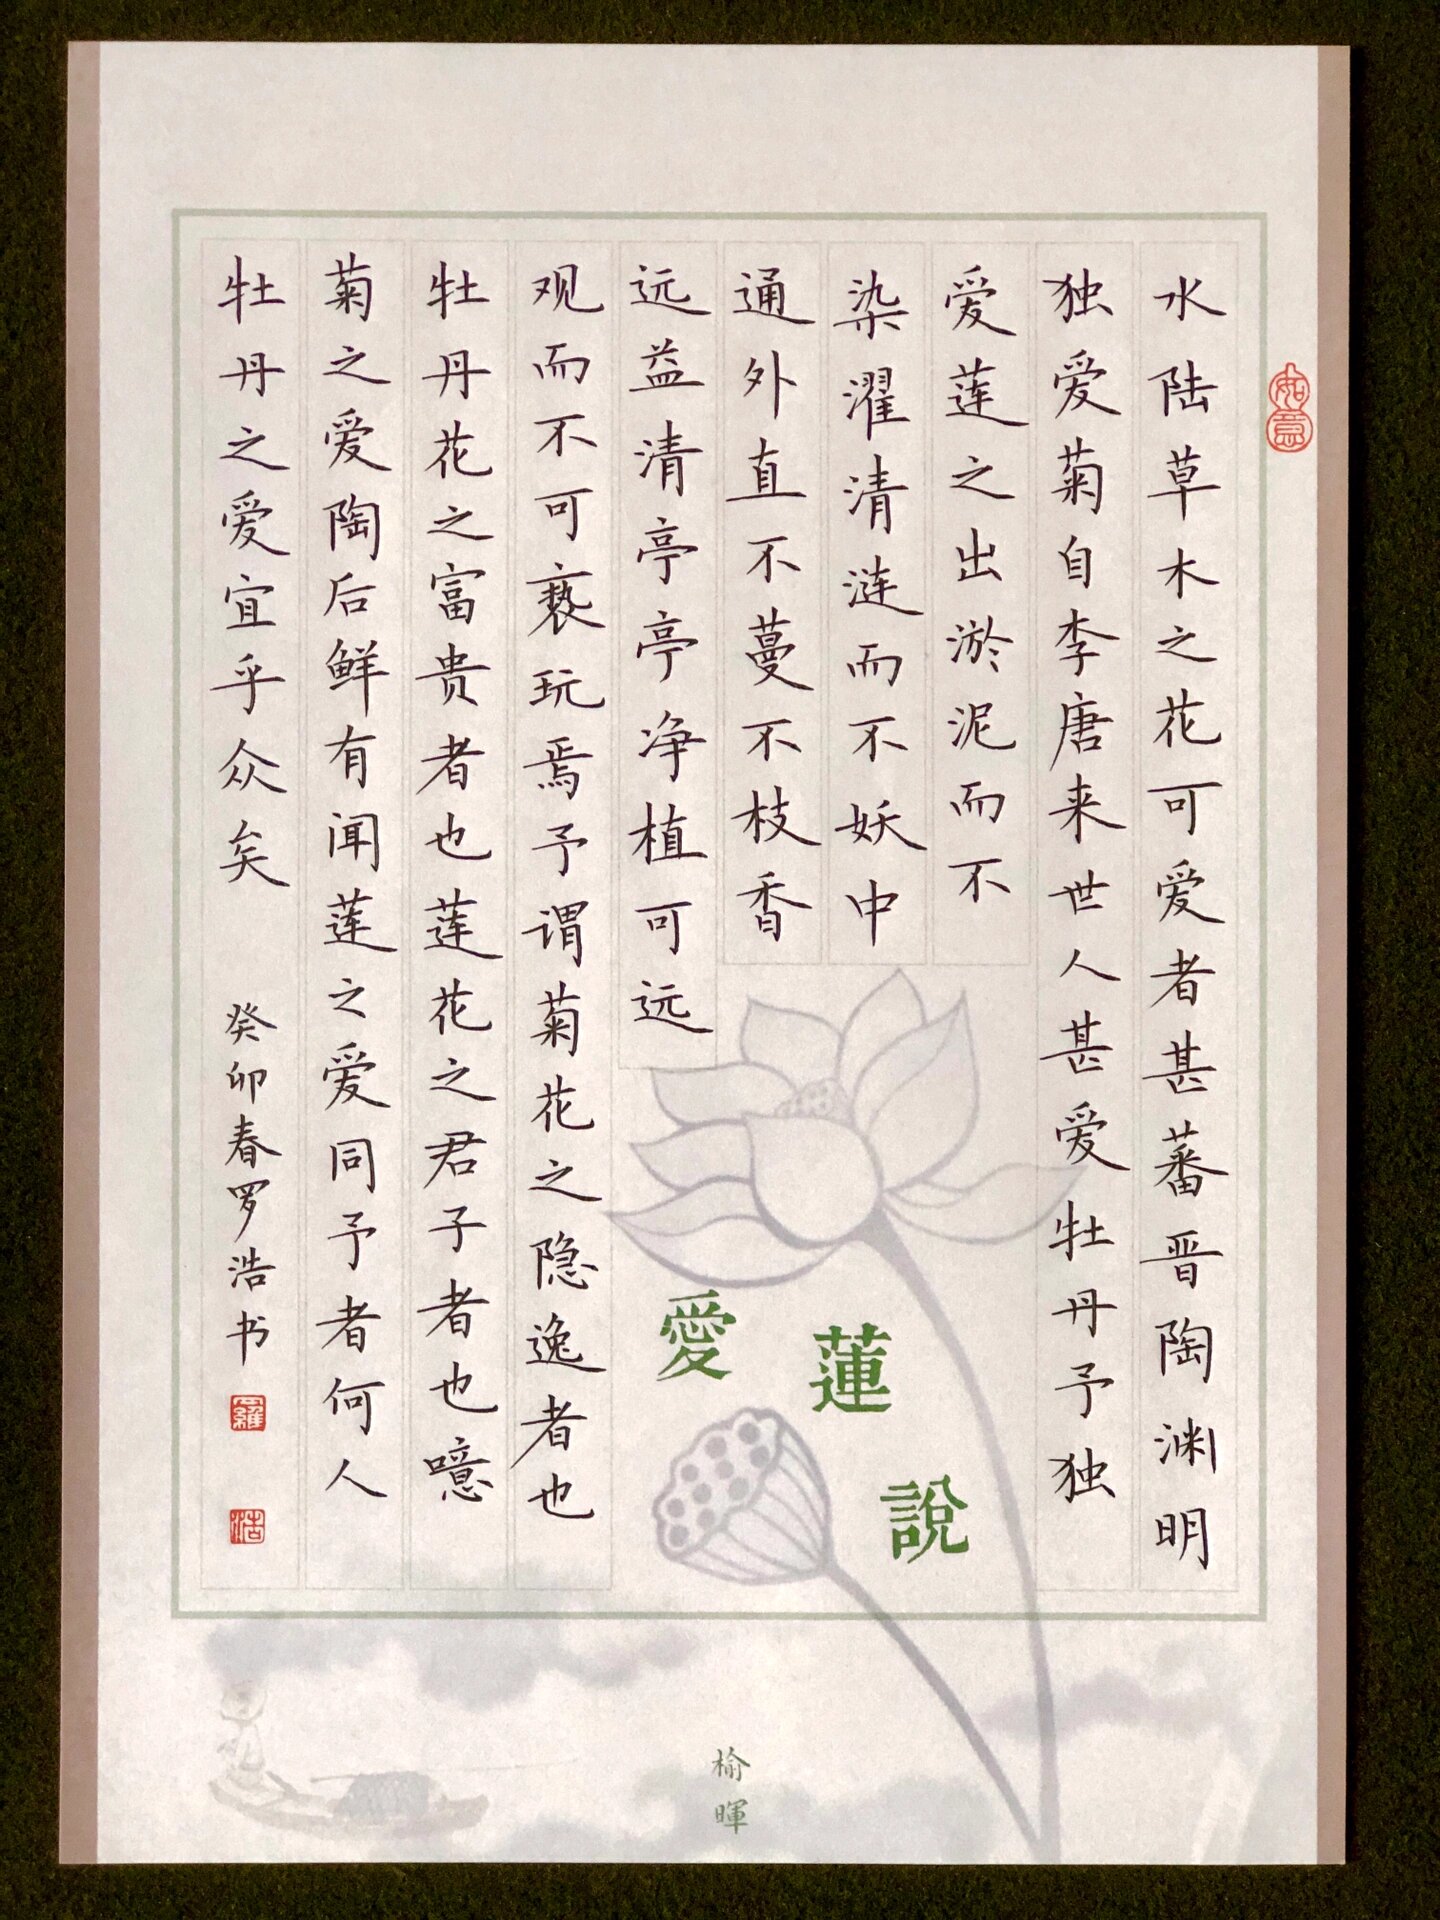 水陆草木之花可爱者甚蕃晋陶渊明
独爱菊自李唐来世人甚爱牡丹予独
爱莲之出淤泥而不
染濯清涟而不妖中
通外直不蔓不枝香
远益清亭亭净植可远
观而不可亵玩焉予谓菊花之隐逸者也
牡丹花之富贵者也莲花之君子者也噫
菊之爱陶后鲜有闻莲之爱同予者何人
牡丹之爱宜乎众矣
癸卯春罗浩书
羅
浩
如意
愛蓮說
榆暉